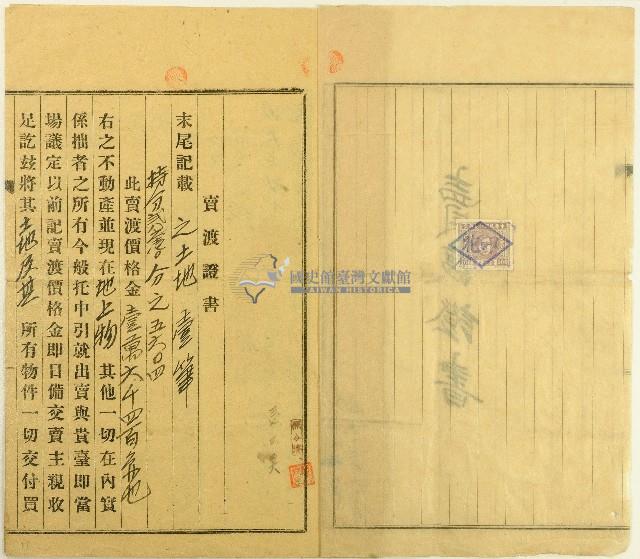 賣渡證書
末尾記載之土地壹筆
持分
分之五六〇四
此賣渡價格金壹萬六千四百
右之不動產並現在地上物其他一切在內實
係拙者之所有今般托中引就出賣與貴臺即當
場議定以前記賣渡價格金即日備交賣主親收
足訖玆將其土地及
所有物件一切交付買
國史館臺灣文獻館
TAIWAN HISTORICA